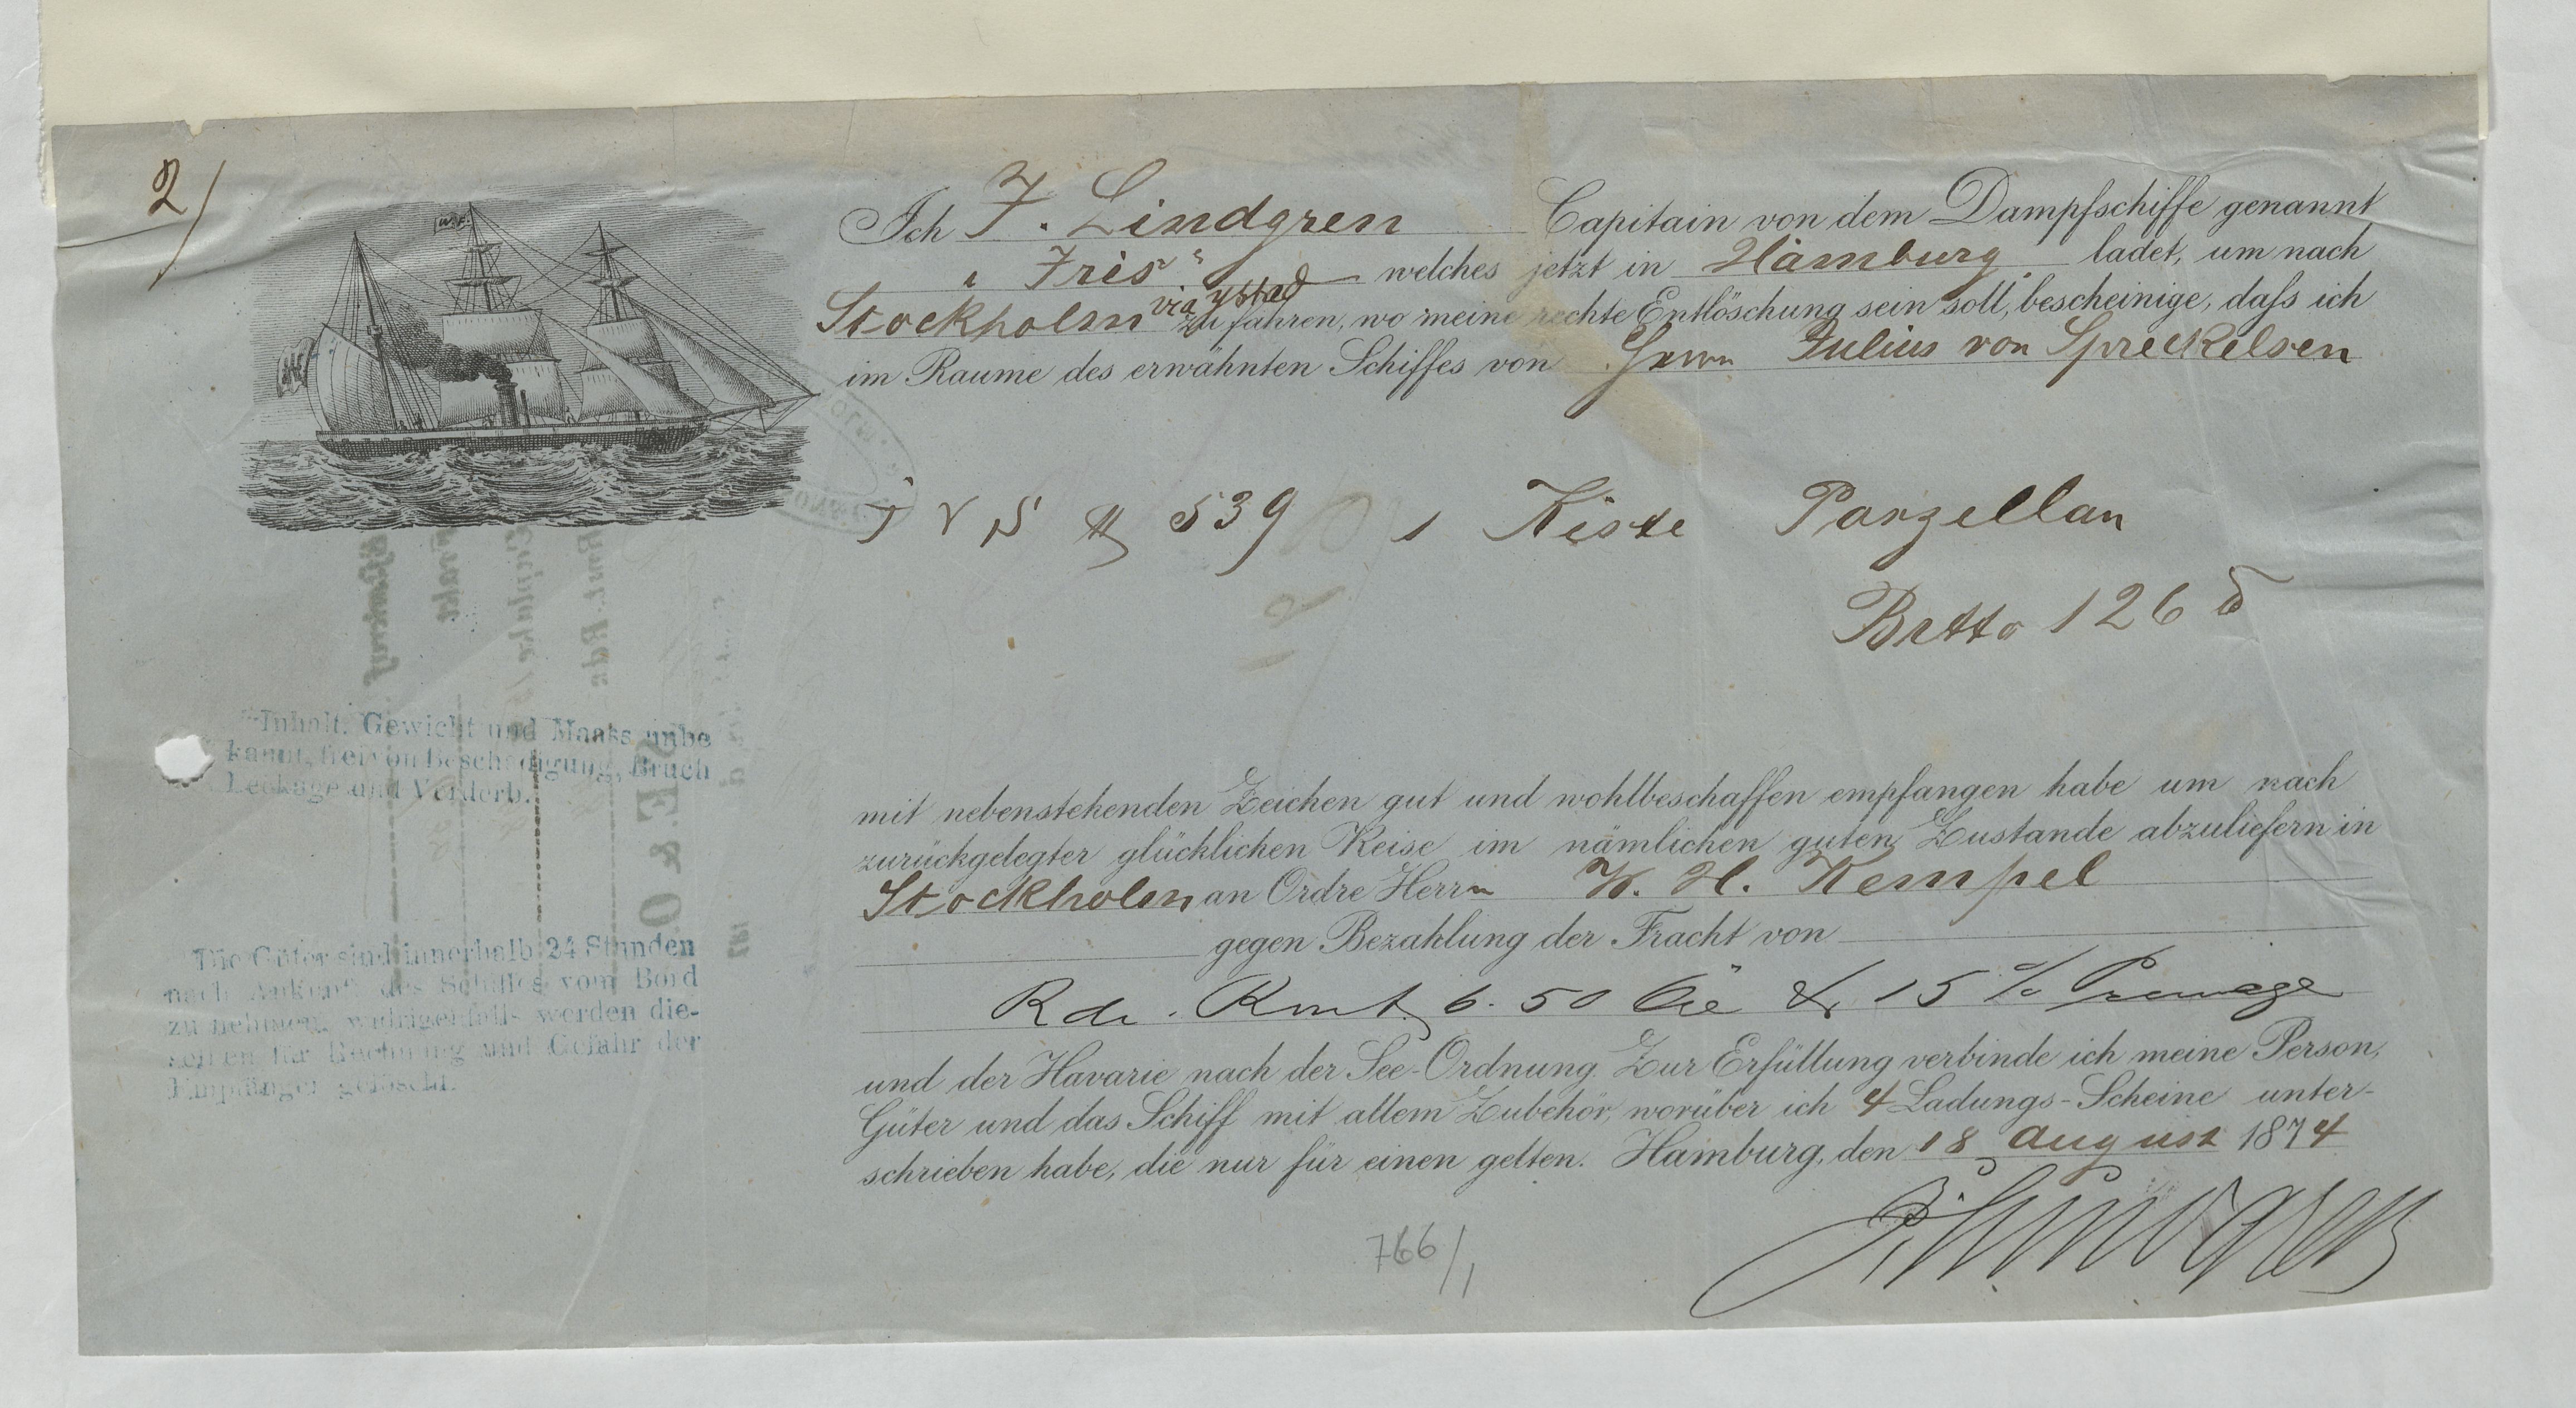 2/
W.F.
Ich F. Lindgren Capitain von dem Dampfschiffe genannt
„Iris“ welches jetzt in Hamburg ladet, um nach
Stockholm via Ystad zu fahren, wo meine rechte Entlöschung sein soll, bescheinige, daſs ich
im Raume des erwähnten Schiffes von Herrn Julius von Spreckelsen
J v S # 539 1 Kiste Porzellan
Brtto 126 ℔
mit nebenstehenden Zeichen gut und wohlbeschaffen empfangen habe um nach
zurückgelegter glücklichen Reise im nämlichen guten Zustande abzuliefern in
Stockholm an Ordre Herrn W. H. Kempel
gegen Bezahlung der Fracht von
Rdr. Rmt 6.50 Öre & 15 % Primage
und der Havarie nach der See-Ordnung. Zur Erfüllung verbinde ich meine Person,
Güter und das Schiff mit allem Zubehör, worüber ich 4 Ladungs-Scheine unter-
schrieben habe, die nur für einen gelten. Hamburg, den 18 August 1874
F. Lindgren
Inhalt, Gewicht und Maass unbe
kannt, frei von Beschädigung, Bruch
Leckage und Verderb.
Die Güter sind innerhalb 24 Stunden
nach Ankunft des Schiffes vom Bord
zu nehmen, widrigenfalls werden die-
selben für Rechnung und Gefahr der
Empfänger gelöscht.
766/1